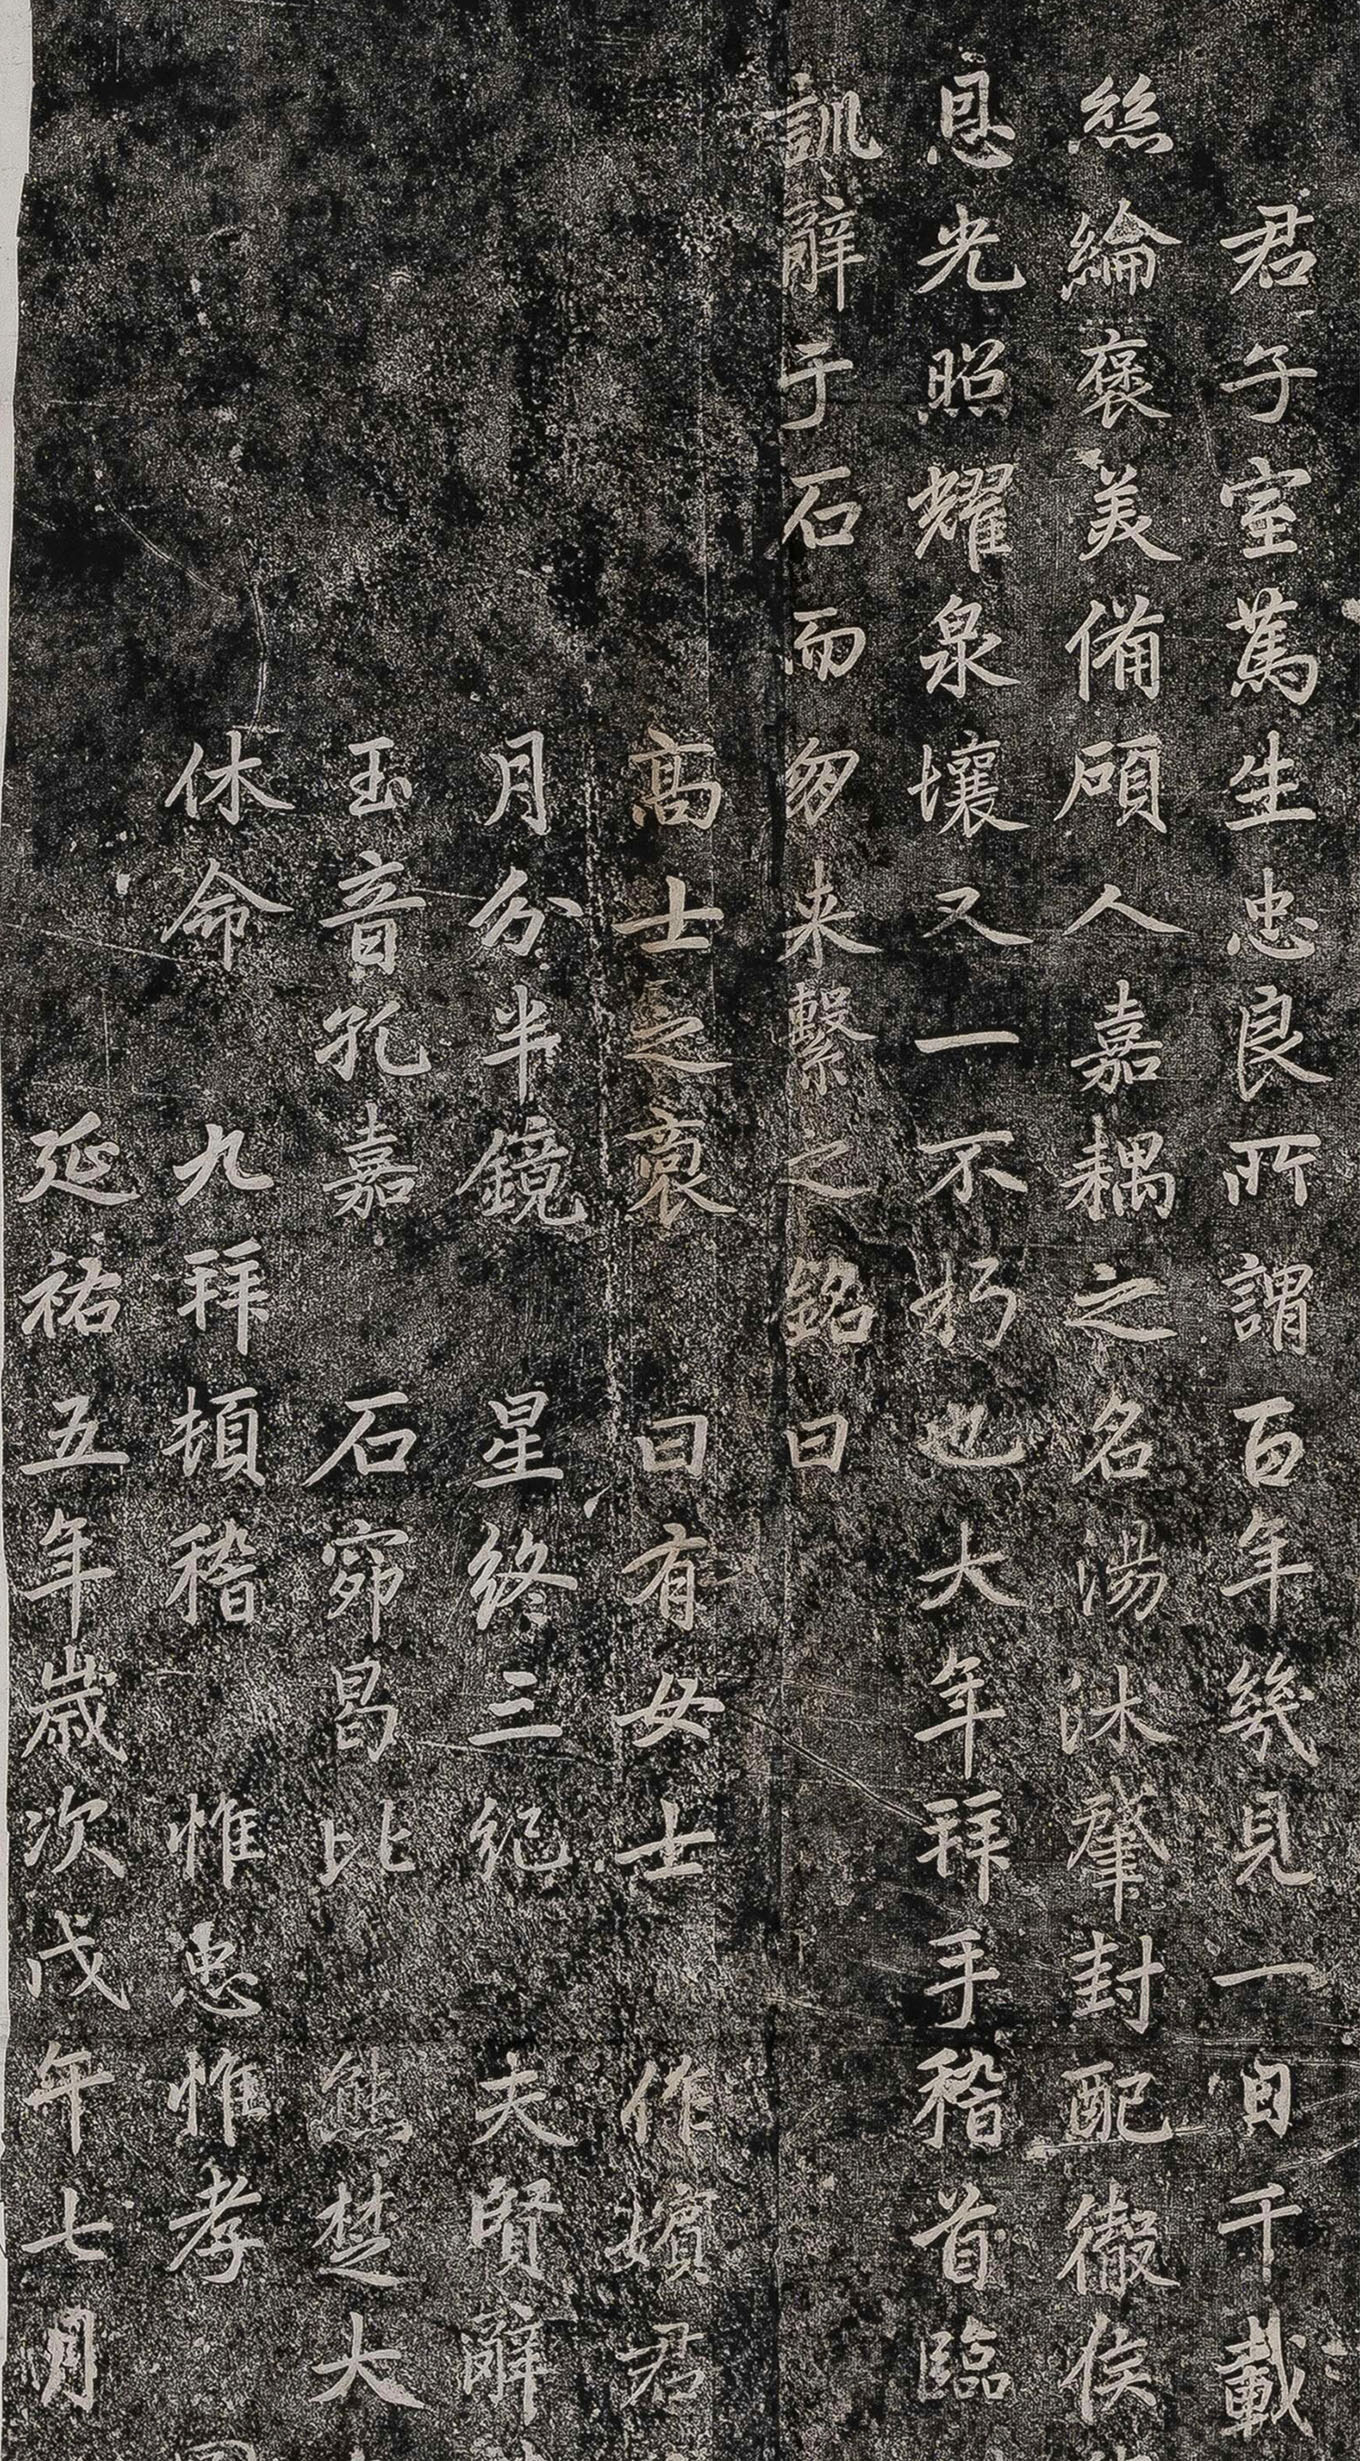 君子室篤生忠良所謂百年幾見一自千載
絲綸褒美備碩人嘉耦之名湯沐肇封配徽侯
恩光照耀泉壤又一不朽也大年拜手稽首臨
訓辭于石而匆来繫之銘曰
高士之裔 曰有女士 作嬪君
月分半鏡 星終三紀 夫賢辭
玉音孔嘉 石窌昌比 熊楚大
休命 九拜頓稽 惟忠惟孝
延祐五年歲次戊午七月